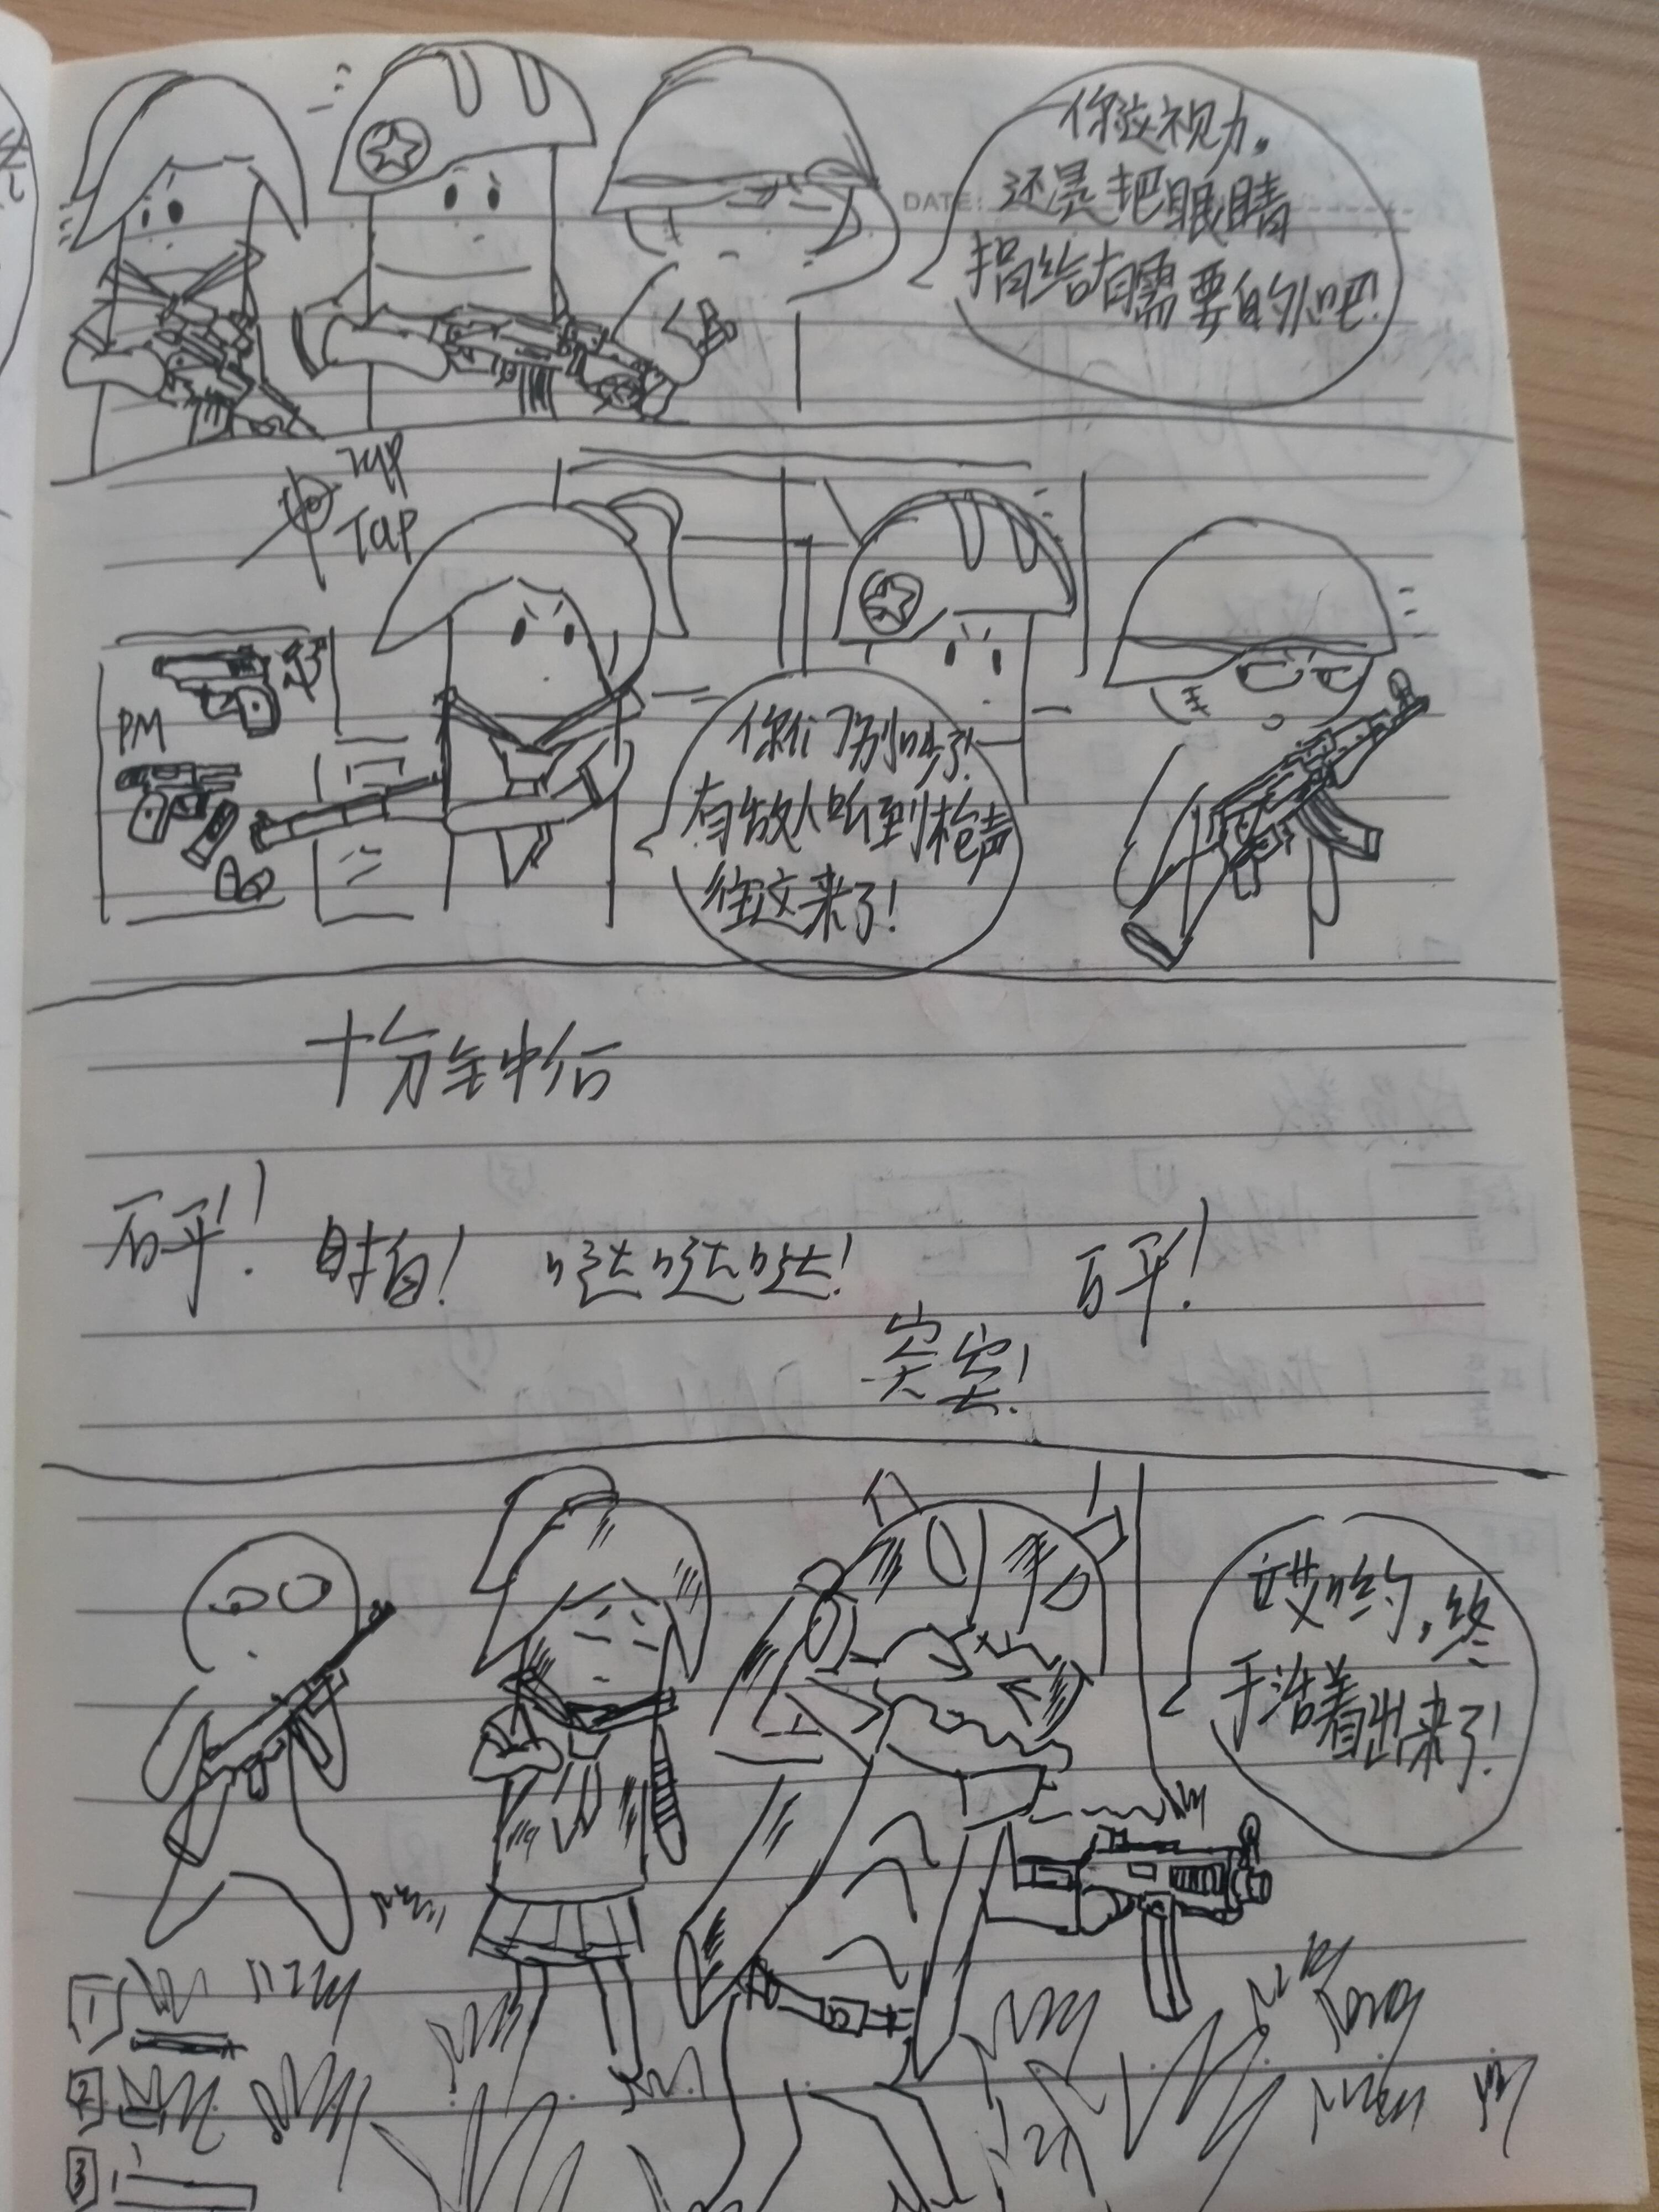 你这视力，
DATE:
还是把眼睛
捐给有需要的人吧!
TAP
TAP
PM
你们了别叫了!
有敌人听到枪声
往这来了!
十分钟后
砰!
啪!
哒哒哒!
砰!
突突!
哎哟，终
于活着出来了!
1
2
3